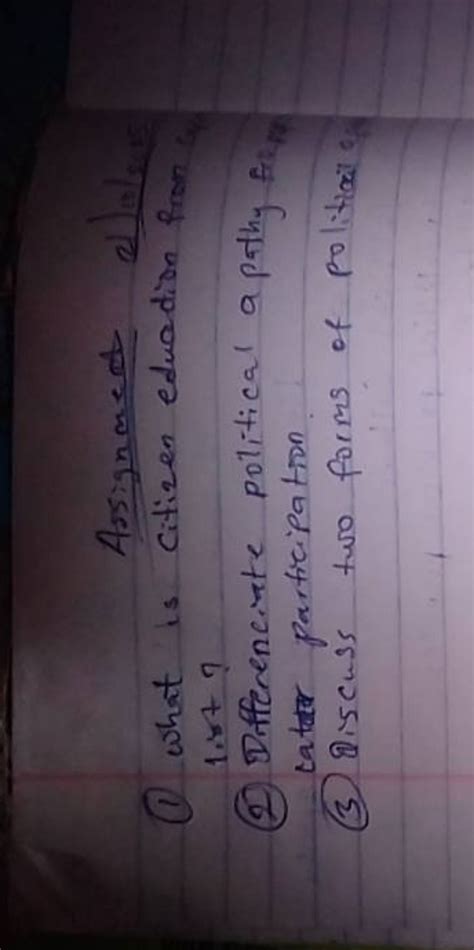 Assignment
① What is Citizen education from
list?
② Differenciate political apathy
participation
③ Discuss two forms of political